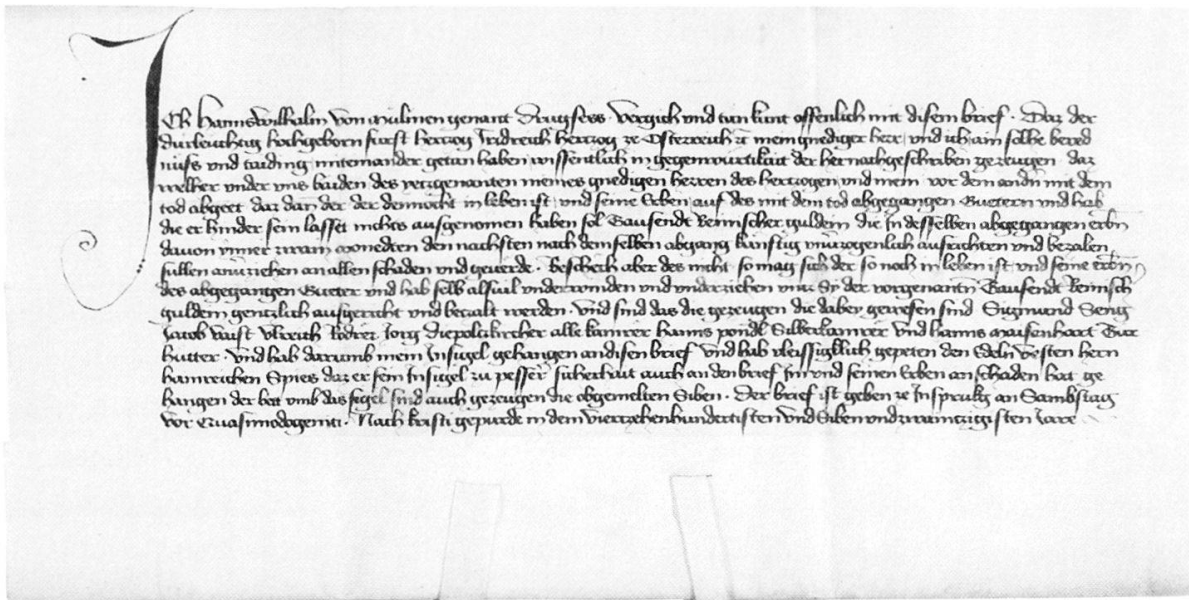 Ich Hanns Wilhalm von Mulinen genant Drugsecz Vergich und tun kunt offenlich mit disem brief · Daz der
durleuchtig hochgeborn furst herczog Fridreich herczog ze Osterreich etc mein gnediger herr, und ich, ain solhe bered
nuss und taiding miteinander getan haben, wissentlich in gegenwurtikait der hernachgeschriben geczeugen daz
welher under uns baiden des yeczgenanten meines gnedigen herren des herczogen, und mein vor dem andn mit dem
tod abgeet daz dan der der dennocht in leben ist, und seine Erben, auf des mit dem tod abgegangen Guetern und hab
die er hinder sein lasset nichts ausgenomen haben sol Tausendt Reinischer guldein die In desselben abgegangen erbn
davon inner zwain monedten den nachsten nach demselben abgang kunftig unverczogenlich ausrichten und beczalen
sullen an verziehen an allen schaden und geverde · Beschech aber des nicht so mag sich der so noch in leben ist, und seine erbn,
des abgegangen Gueter und hab selb alsvil underwinden und underziehen uncz Sy der vorgenantn Tausendt Reinisch
guldein genczlich ausgericht und beczalt werden · Und sind das die geczeugen die dabey gewesen sind Sigmund
Jacob Vaist Ulreich Jorg Diepolczkircher alle kamrer hanns pondl Silberkamrer Und hanns maisenhart Tur
hutter · Und hab darumb mein Insigel gehangen an disen brief Und hab vleissigklich gepeten den Edeln Vesten hern
hainreichen Spies daz er sein Insigel zu pesser sicherhait auch an den brief Im und seinen Erben an schaden hat ge
hangen der bett umb das sigel sind auch geczeugen die obgemelten Siben · Der brief ist geben ze Insprukg an Sambstag
vor Quasimodogeniti · Nach kristi gepurde in dem vierczehenhundertisten Und Siben und zwainczigisten Jare